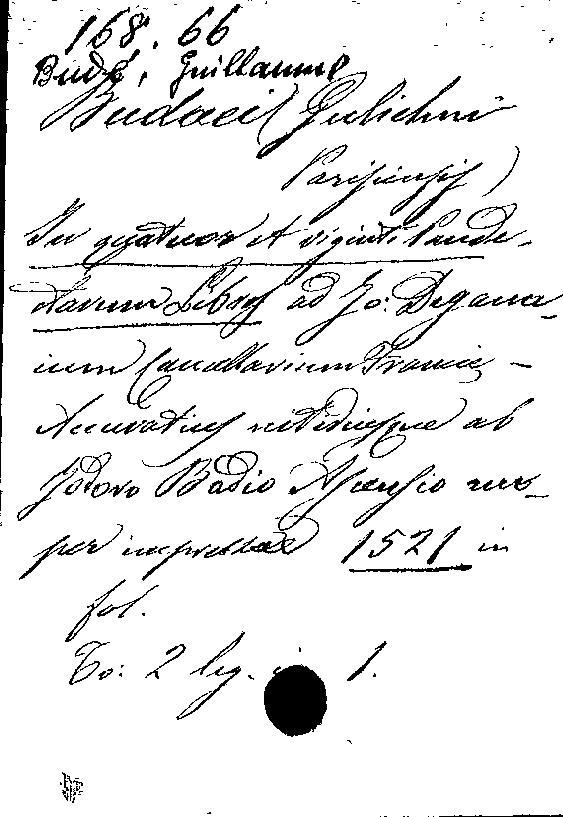 168.66
Budé, Guillaume
Budaei (Gulielmi
Parisiensis)
In quatuor et viginti Pande-
ctarum Libros ad Jo: Degana-
ium Cancellarium Francie -
Accuratius nitidiusque ab
Jodoco Badio Ascensio nu-
per impressae 1521 in
fol.
To: 2 leg. in 1.